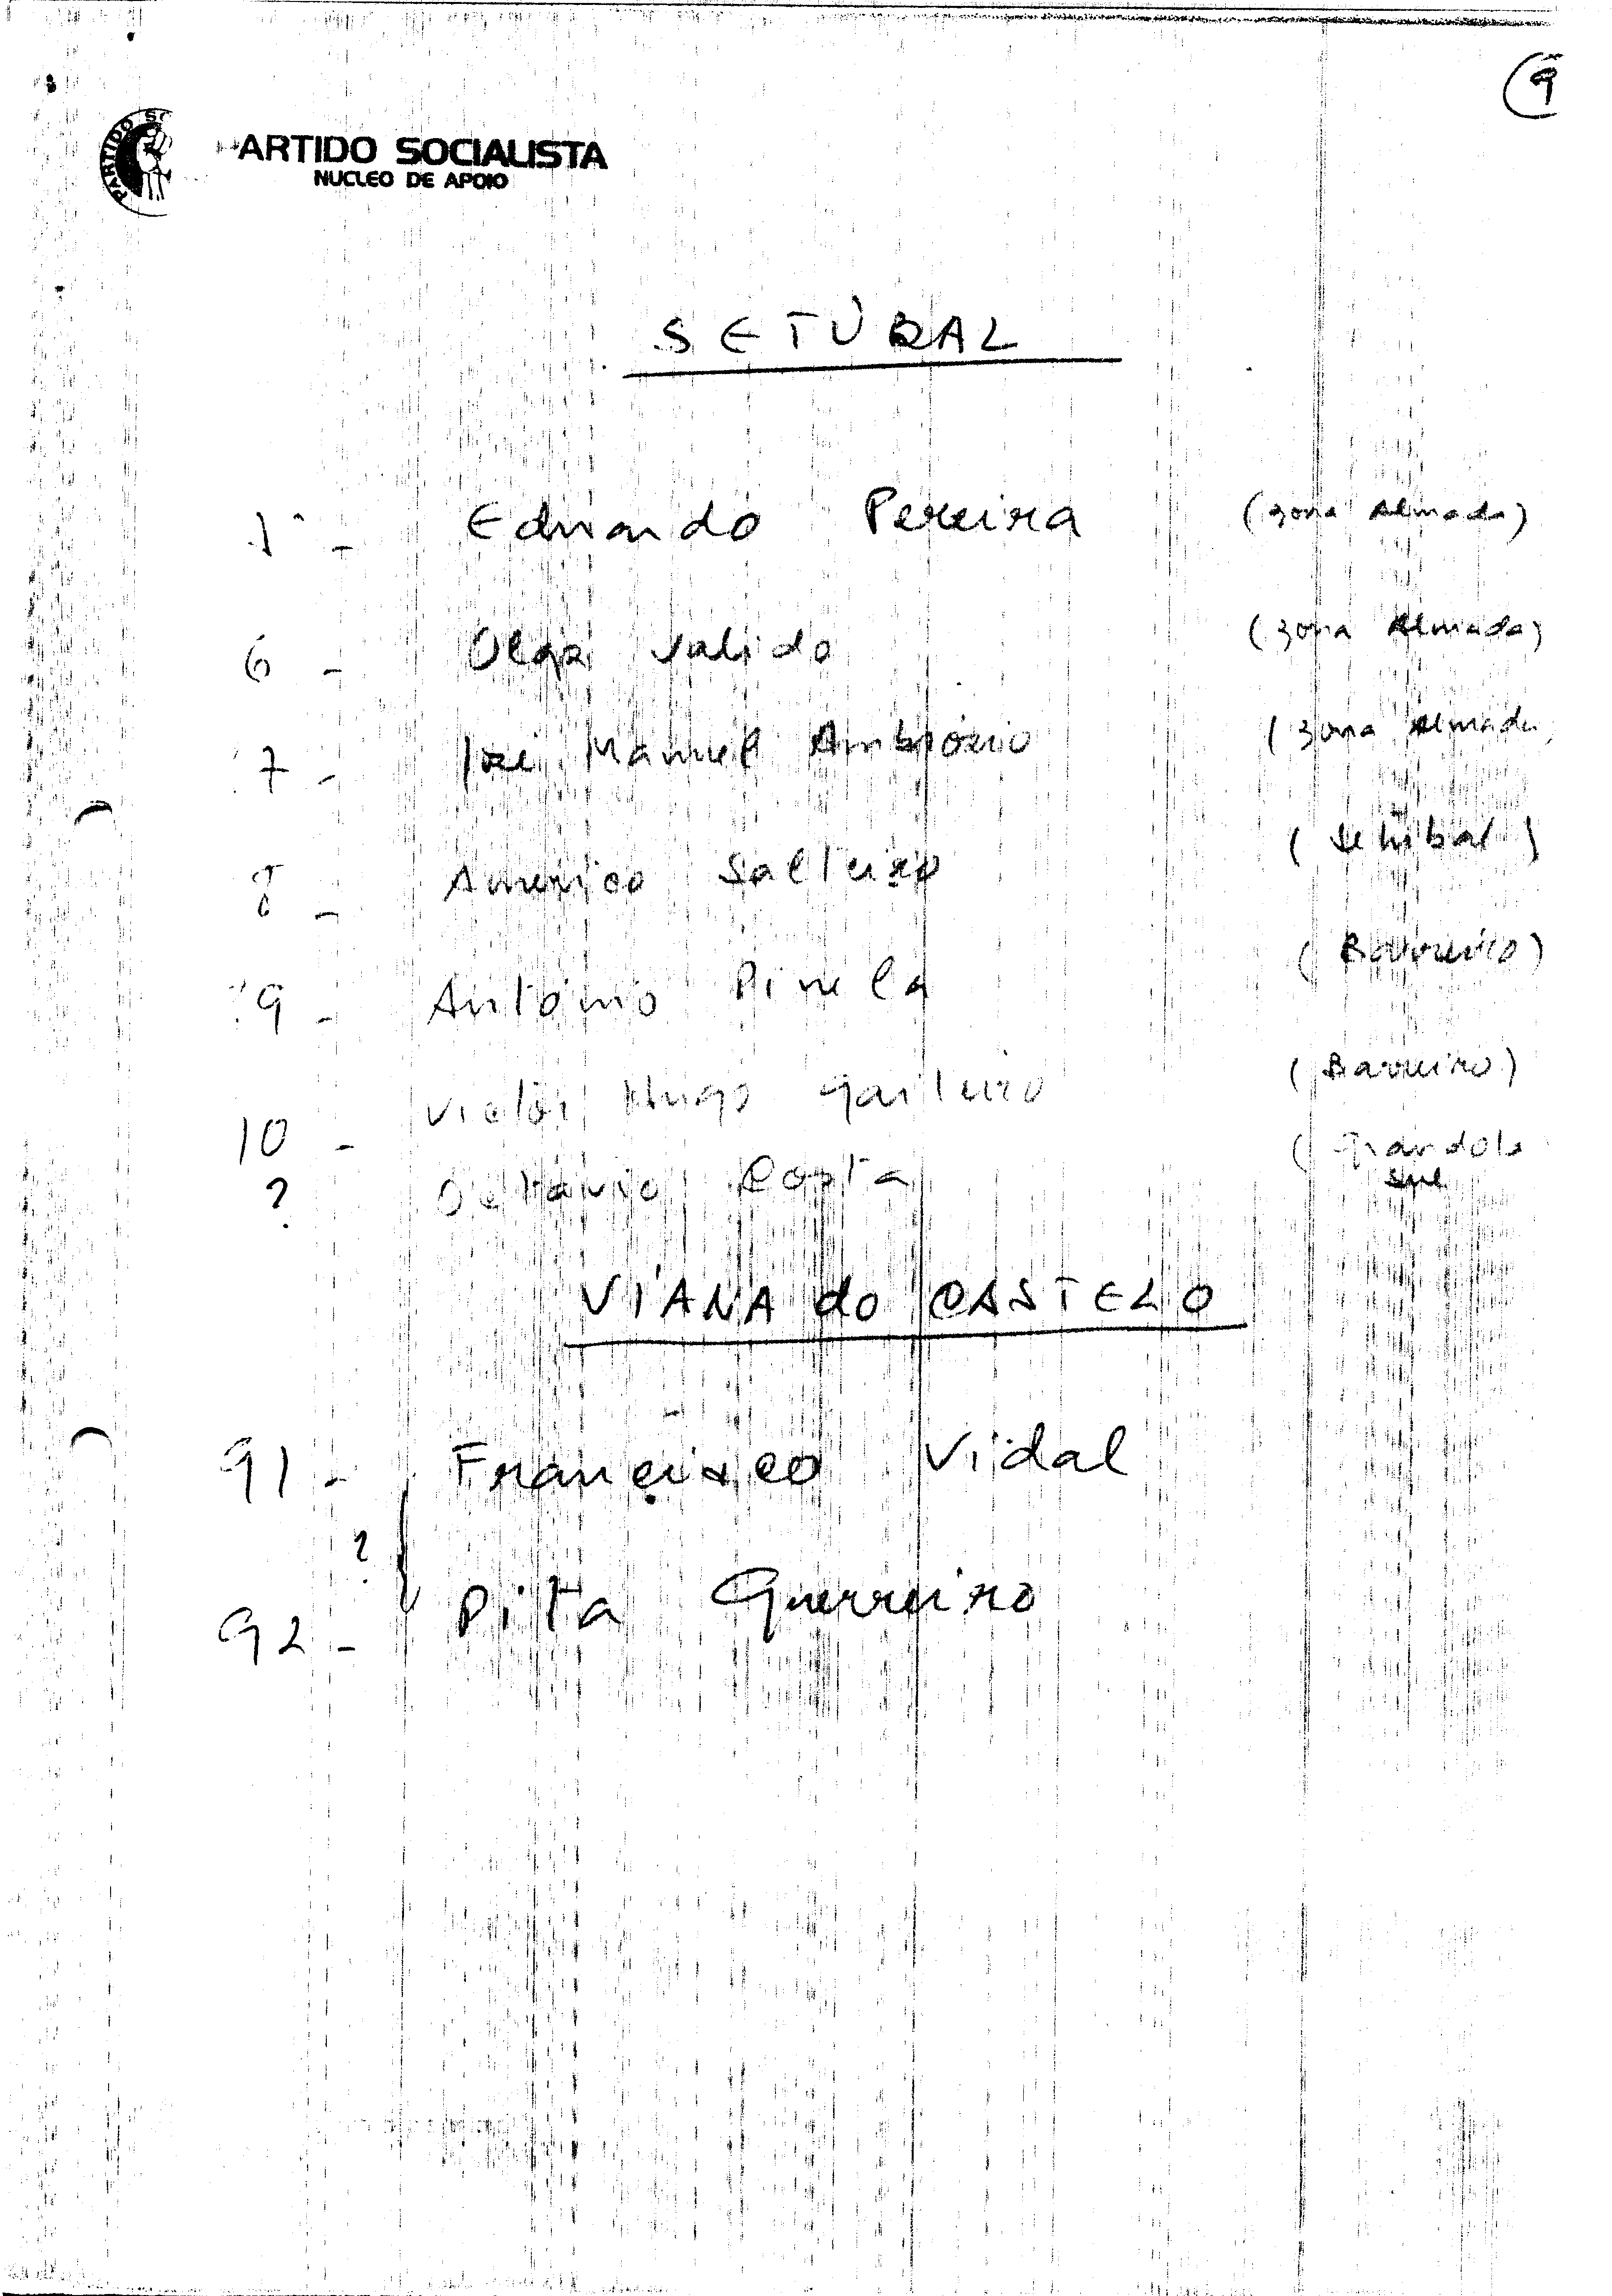 9
PARTIDO SOCIALISTA
NUCLEO DE APOIO
SETÚBAL
1 - Eduardo Pereira (zona Almada)
6 - Olga Valido (zona Almada)
7 - José Manuel Ambrósio (zona Almada
8 - Americo Salteiro (Setúbal)
9 - António Pinela (Barreiro)
10 - Victor Hugo (Barreiro)
? Octavio Costa (Grandola
Sul
VIANA do CASTELO
91 - Francisco Vidal
?
92 - Pita Guerreiro